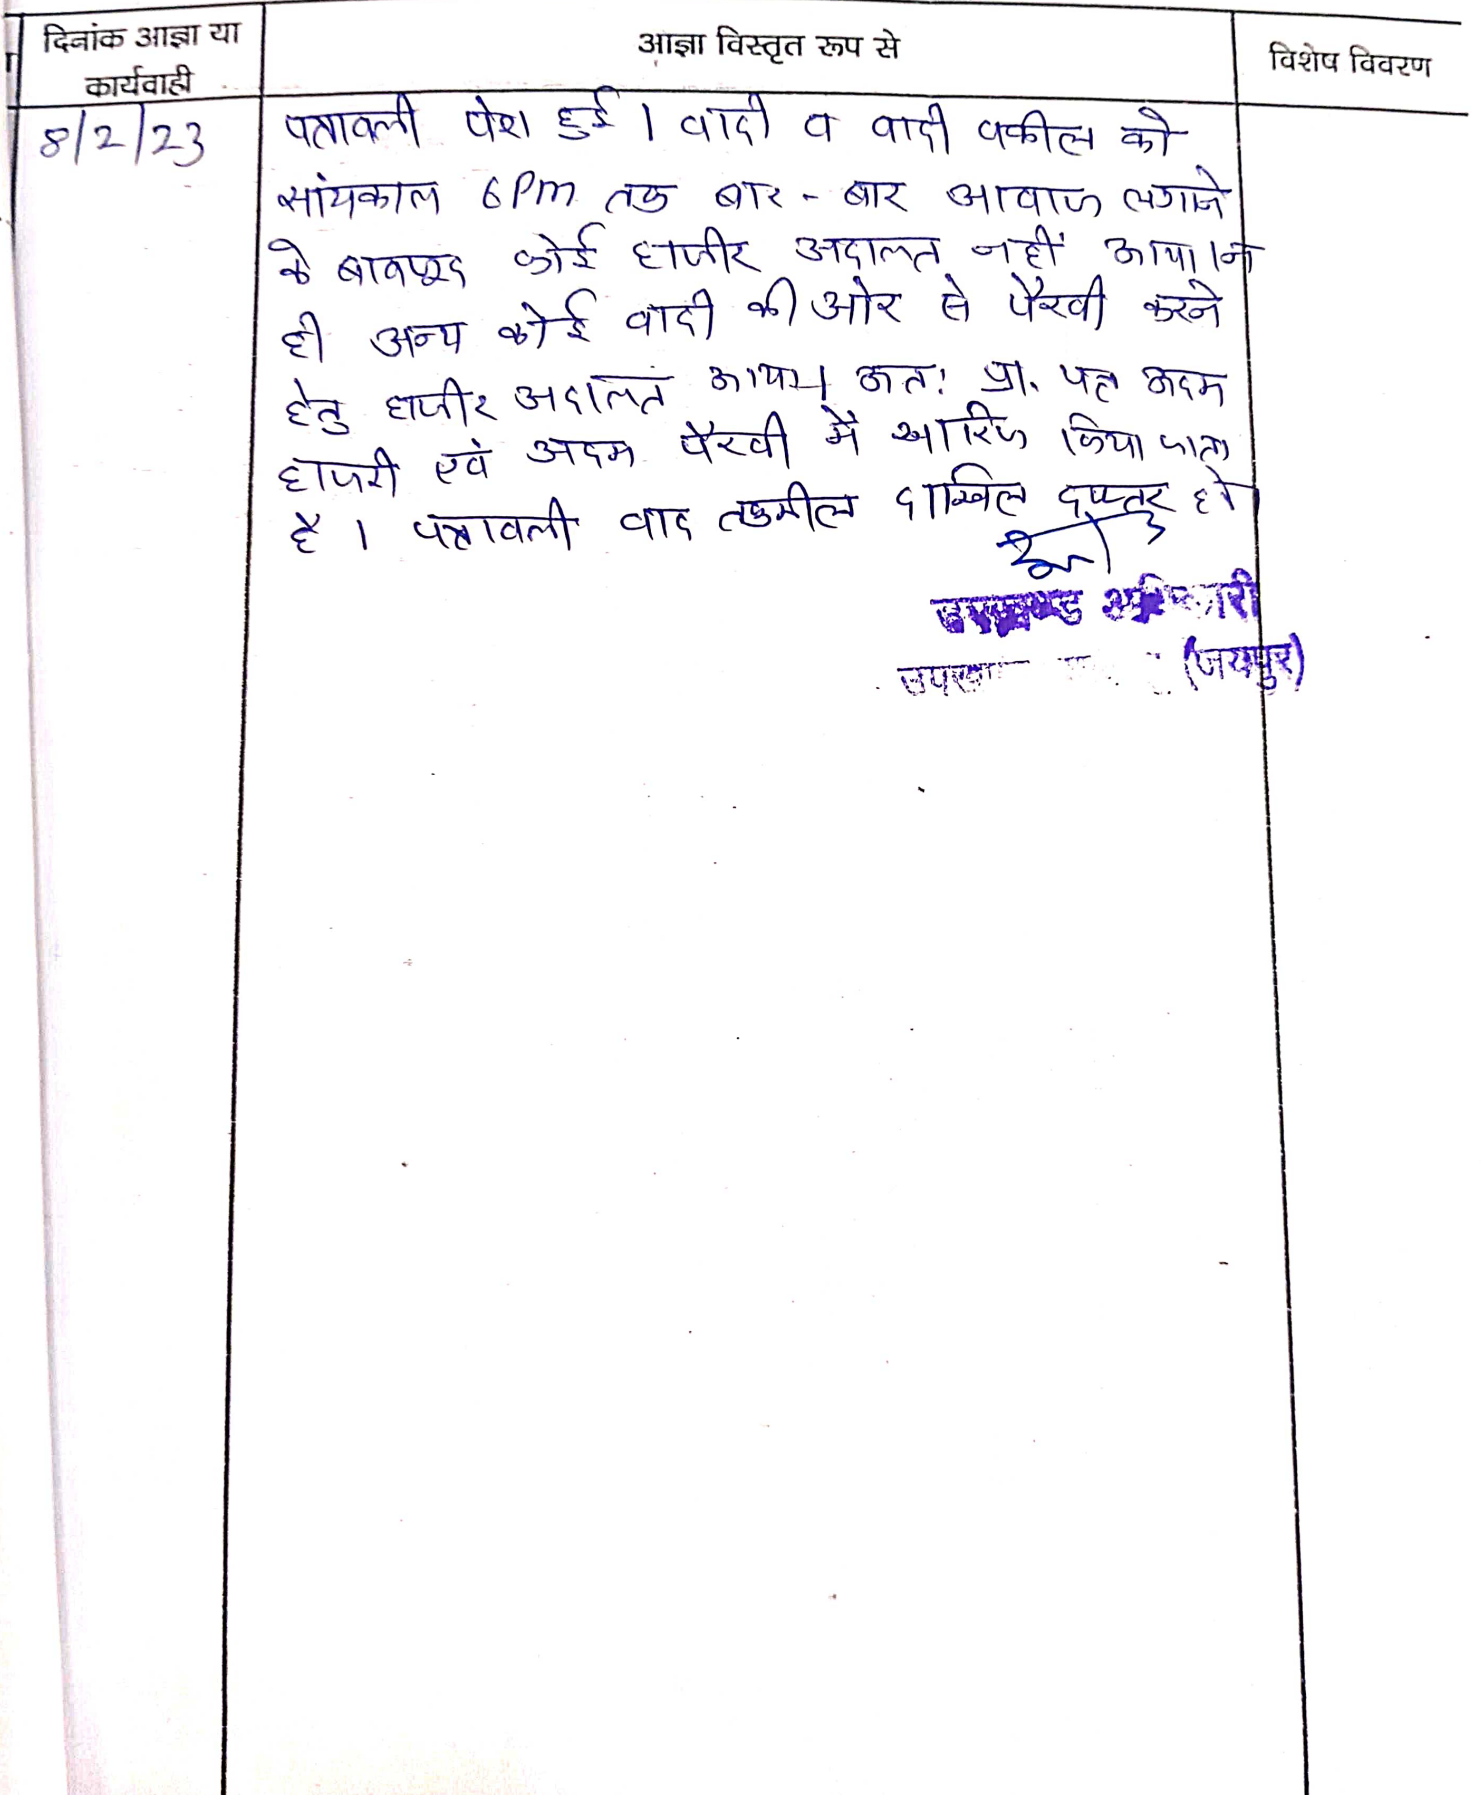 दिनांक आज्ञा या
कार्यवाही
आज्ञा विस्तृत रूप से
विशेष विवरण
8/2/23
पत्रावली पेश हुई । वादी व वादी वकील को
सांयकाल 6 Pm तक बार - बार आवाज लगाने
के बावजूद कोई हाजीर अदालत नहीं आया । न
ही अन्य कोई वादी की ओर से पैरवी करने
हेतु हाजीर अदालत आया । अतः प्रा. पत्र अदम
हाजरी एवं अदम पैरवी में खारिज किया जाता
है । पत्रावली बाद तकमील दाखिल दफ्तर हो
उपखण्ड अधिकारी
(जयपुर)